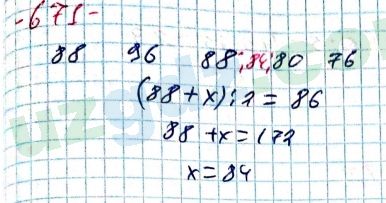 -671-
88 96 88; 84; 80 76
(88+x):2 = 86
88 + x = 172
x = 84